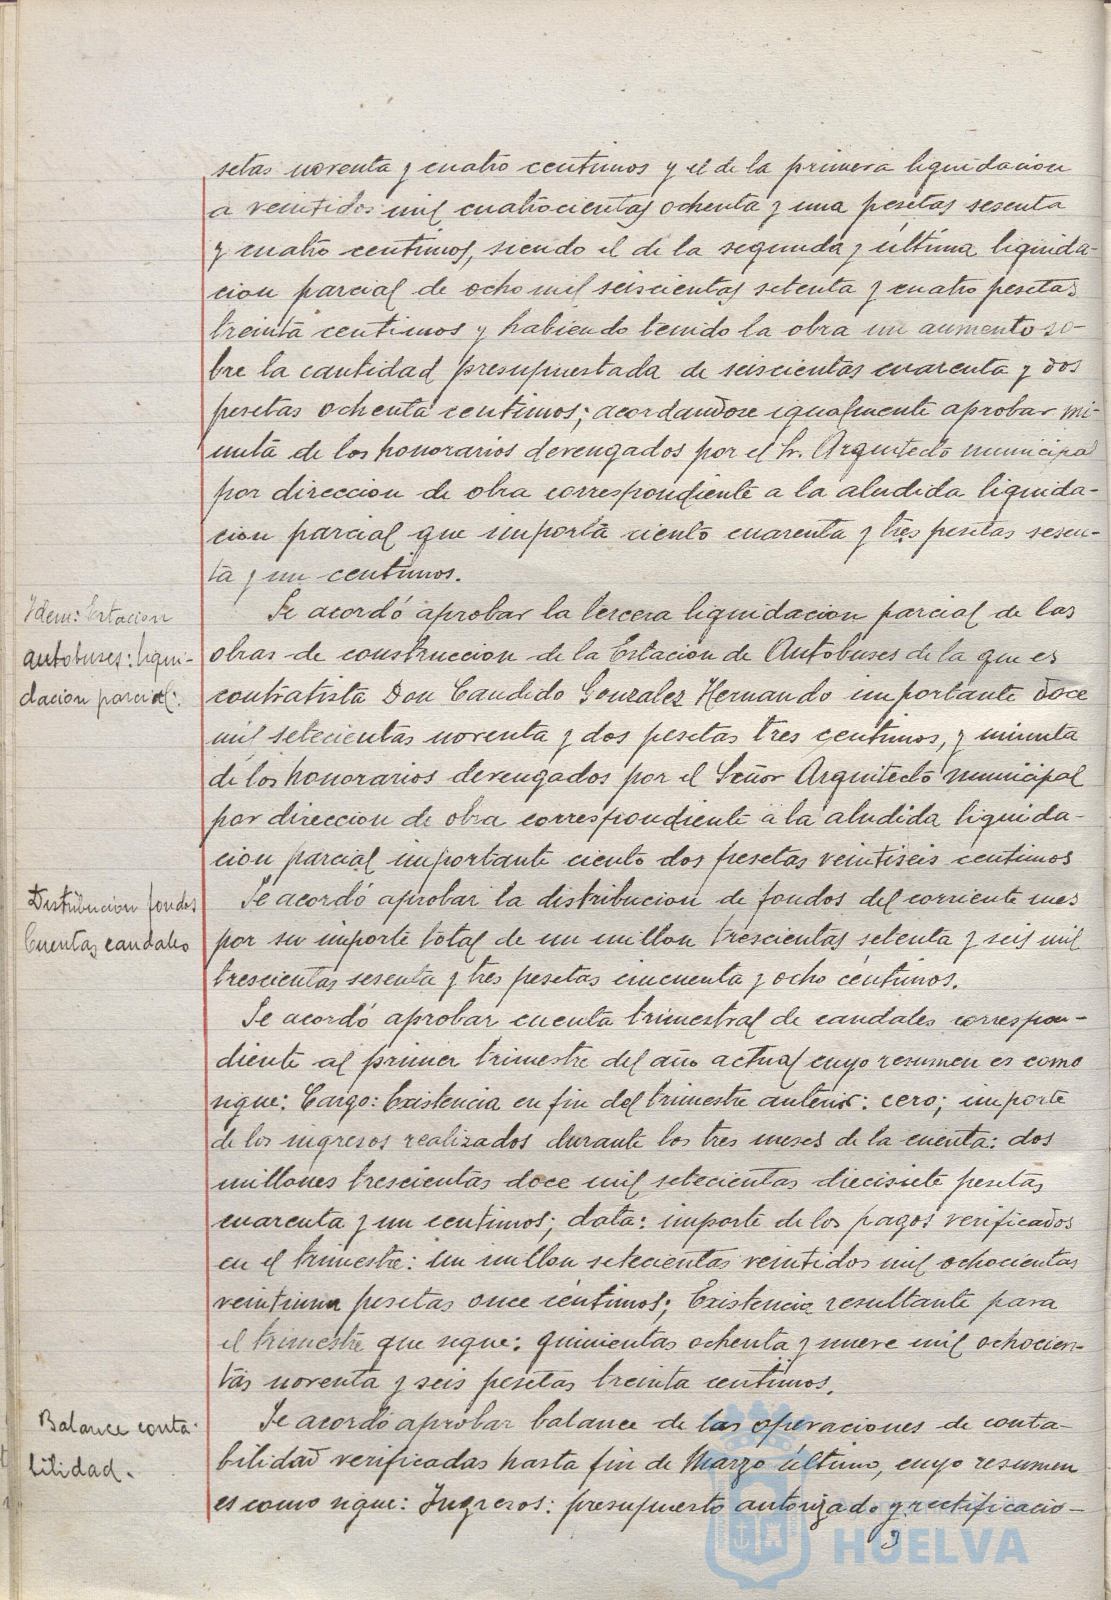 setas noventa y cuatro centimos y el de la primera liquidacion
a veintidos mil cuatrocientas ochenta y una pesetas sesenta
y cuatro centimos, siendo el de la segunda y última liquida-
cion parcial de ocho mil seiscientas setenta y cuatro pesetas
treinta centimos y habiendo tenido la obra un aumento so-
bre la cantidad presupuestada de seiscientas cuarenta y dos
pesetas ochenta centimos; acordandose igualmente aprobar mi-
nuta de los honorarios devengados por el Sr. Arquitecto municipal
por direccion de obra correspondiente a la aludida liquida-
cion parcial que importa ciento cuarenta y tres pesetas sesen-
ta y un centimos.
Idem: Estacion
autobuses: liqui-
dacion parcial:
Se acordó aprobar la tercera liquidacion parcial de las
obras de construccion de la Estacion de Autobuses de la que es
contratista Don Candido Gonzalez Hernando importante doce
mil setecientas noventa y dos pesetas tres centimos, y minuta
de los honorarios devengados por el Señor Arquitecto municipal
por direccion de obra correspondiente a la aludida liquida-
cion parcial importante ciento dos pesetas veintiseis centimos
Distribucion fondos
Cuentas caudales
Se acordó aprobar la distribucion de fondos del corriente mes
por su importe total de un millon trescientas setenta y seis mil
trescientas sesenta y tres pesetas cincuenta y ocho céntimos.
Se acordó aprobar cuenta trimestral de caudales correspon-
diente al primer trimestre del año actual cuyo resumen es como
sigue: Cargo: Existencia en fin del trimestre anterior: cero; importe
de los ingresos realizados durante los tres meses de la cuenta: dos
millones trescientas doce mil setecientas diecisiete pesetas
cuarenta y un centimos; data: importe de los pagos verificados
en el trimestre: un millon setecientas veintidos mil ochocientas
veintiuna pesetas once céntimos; Existencia resultante para
el trimestre que sigue: quinientas ochenta y nueve mil ochocien-
tas noventa y seis pesetas treinta centimos.
Balance conta-
bilidad.
Se acordó aprobar balance de las operaciones de conta-
bilidad verificadas hasta fin de Marzo último, cuyo resumen
es como sigue: Ingresos: presupuesto autorizado y rectificacio-
HUELVA